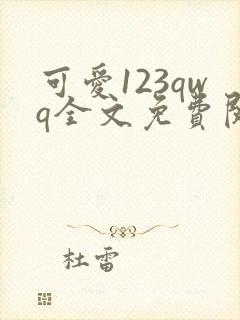 可愛123qw
q全文免費閱
杜雷